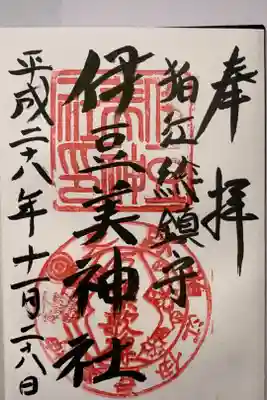 奉拝
狛江総鎮守
伊豆美神社
平成二八年十一月二八日